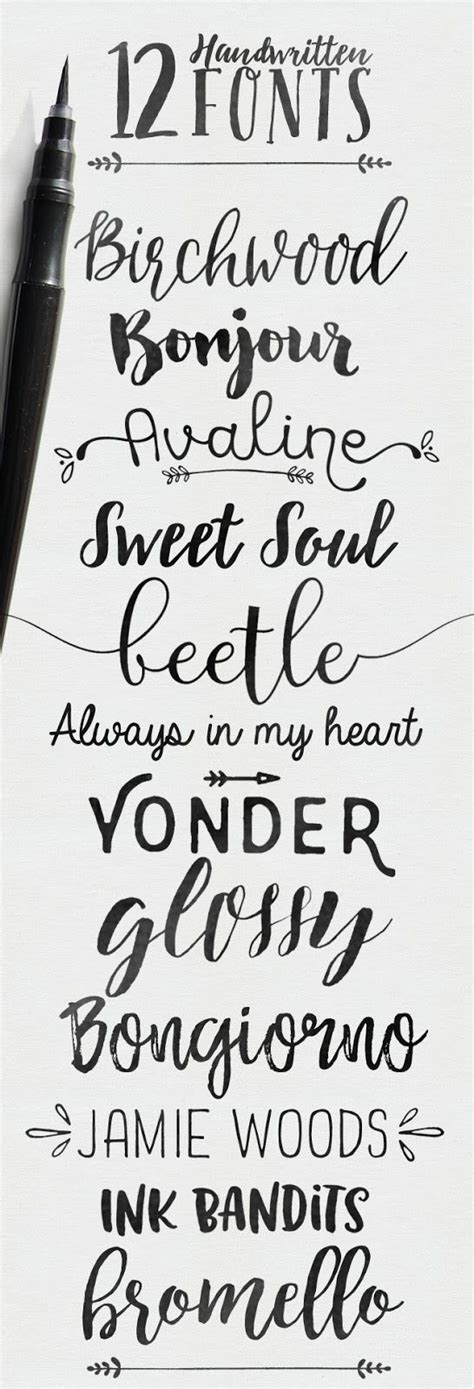 12 Handwritten
FONTS
Birchwood
Bonjour
Avaline
Sweet Soul
beetle
Always in my heart
YONDER
glossy
Bongiorno
JAMIE WOODS
INK BANDiTS
bromello